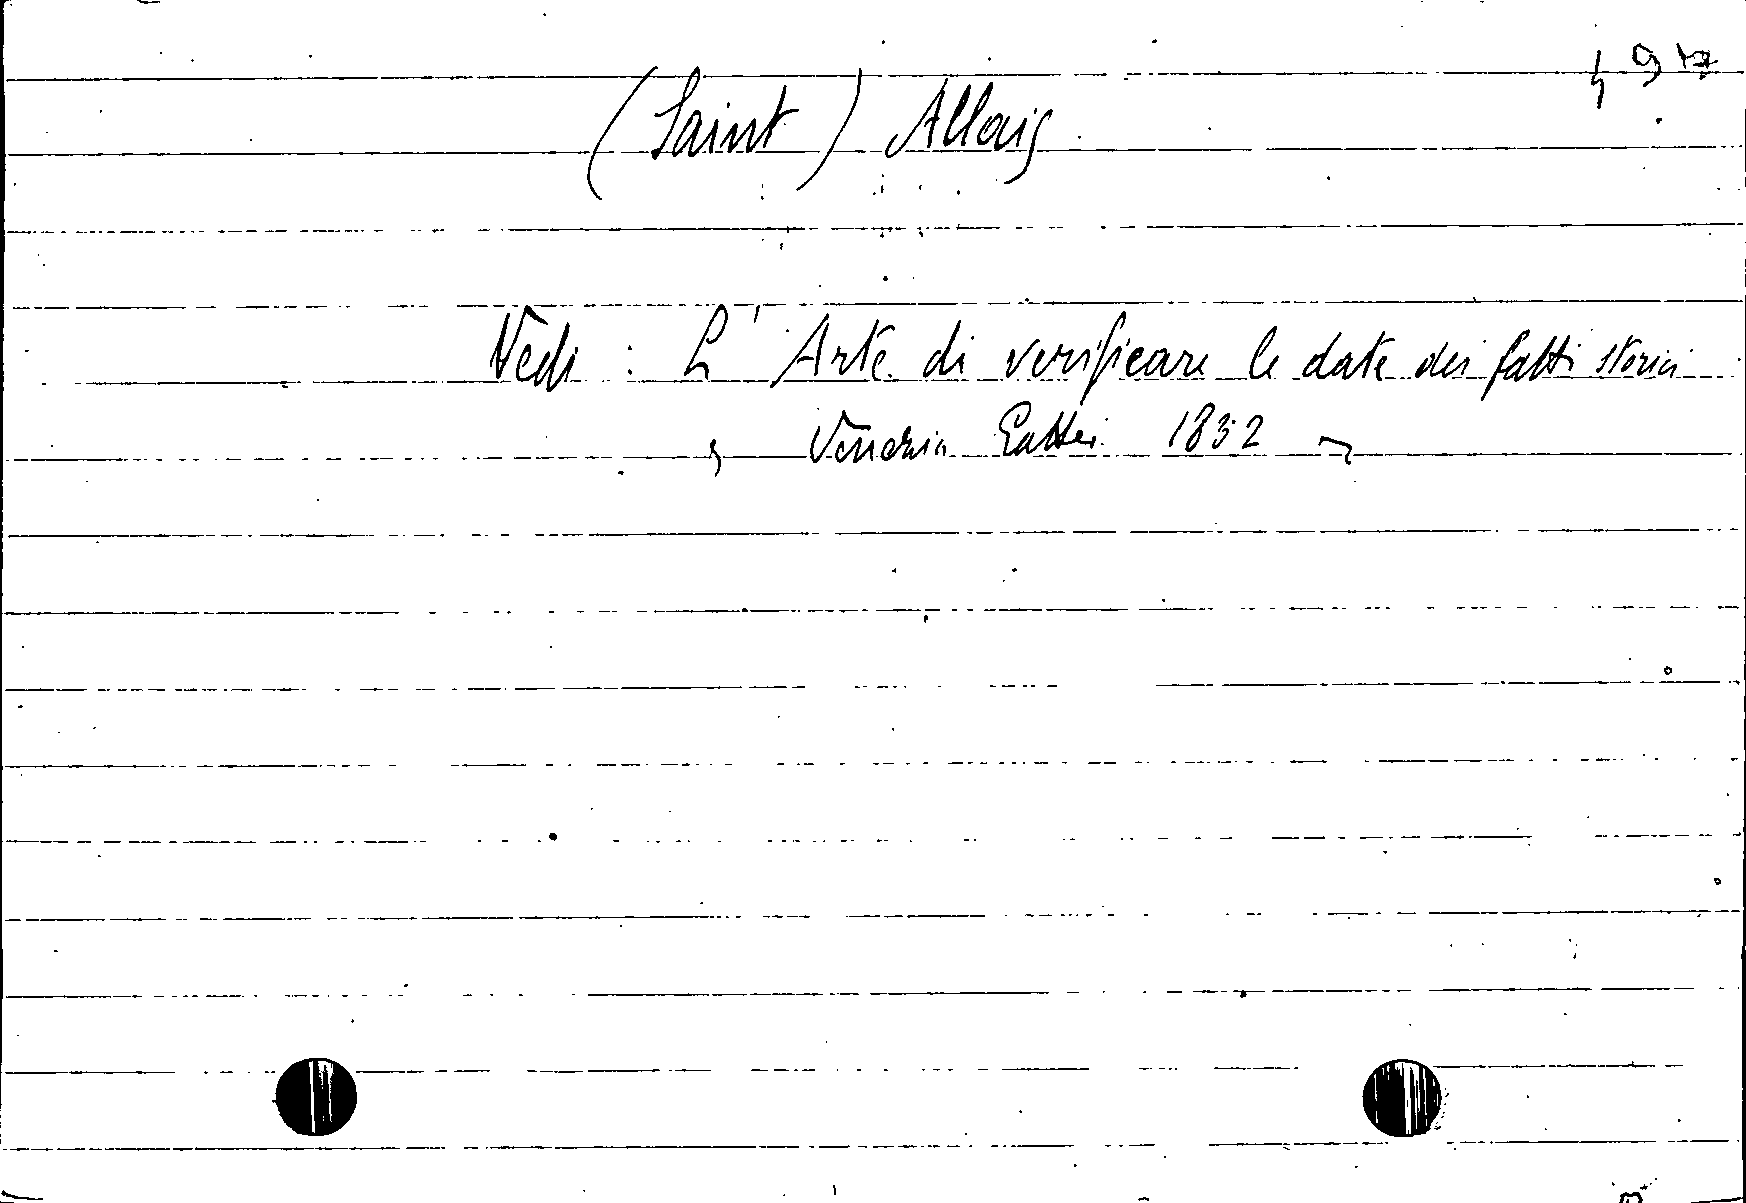 (Saint) Allais
Vedi : L' Arte di verificare le date dei fatti storici
Venezia Gattei 1832